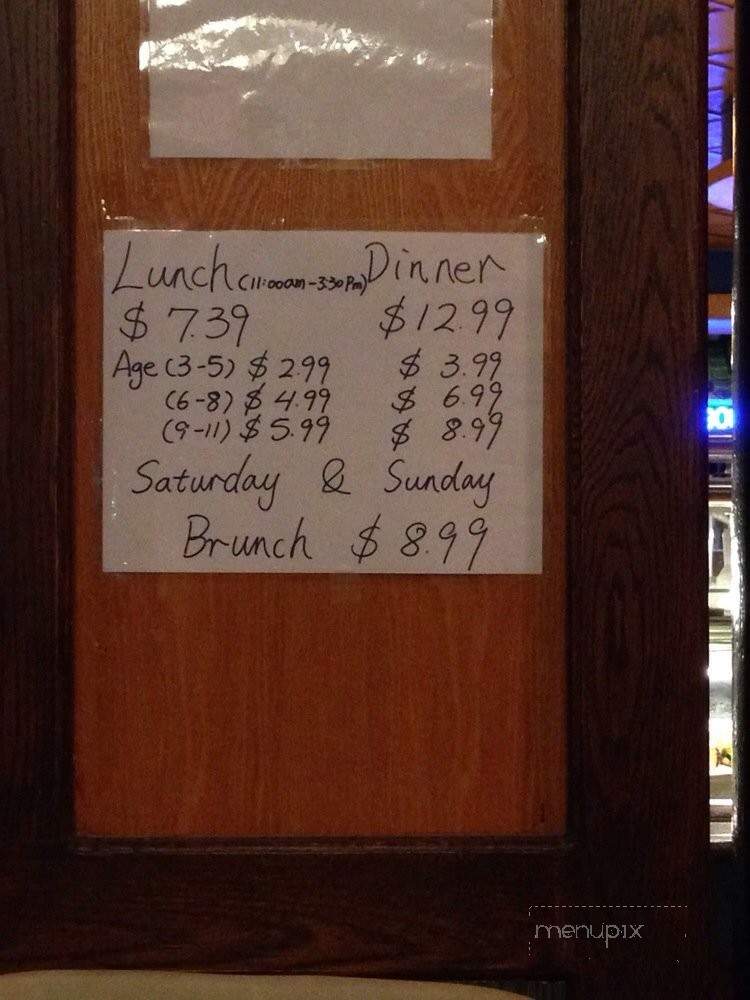 Lunch (11:00am-3:30pm) Dinner
$ 7.39 $12.99
Age (3-5) $ 2.99 $ 3.99
(6-8) $ 4.99 $ 6.99
(9-11) $ 5.99 $ 8.99
Saturday & Sunday
Brunch $ 8.99
menupix